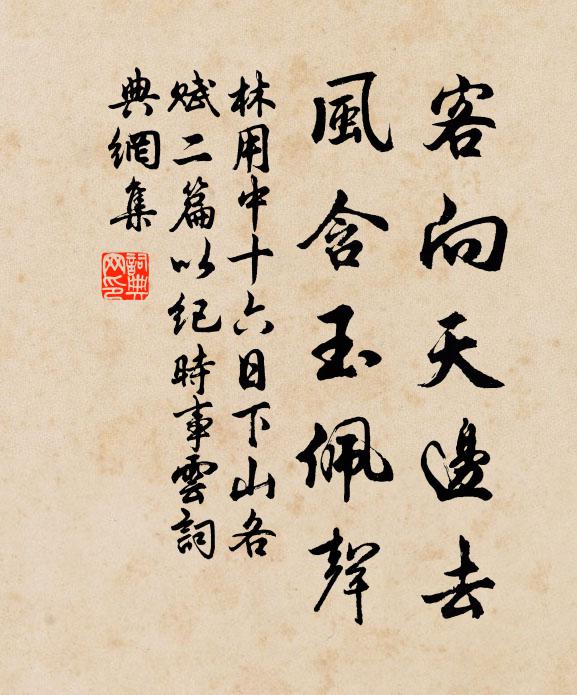 客向天邊去
風含玉佩聲
林用中十六日下山各
賦二篇以纪時事雲詞
典網集
詞典
网印